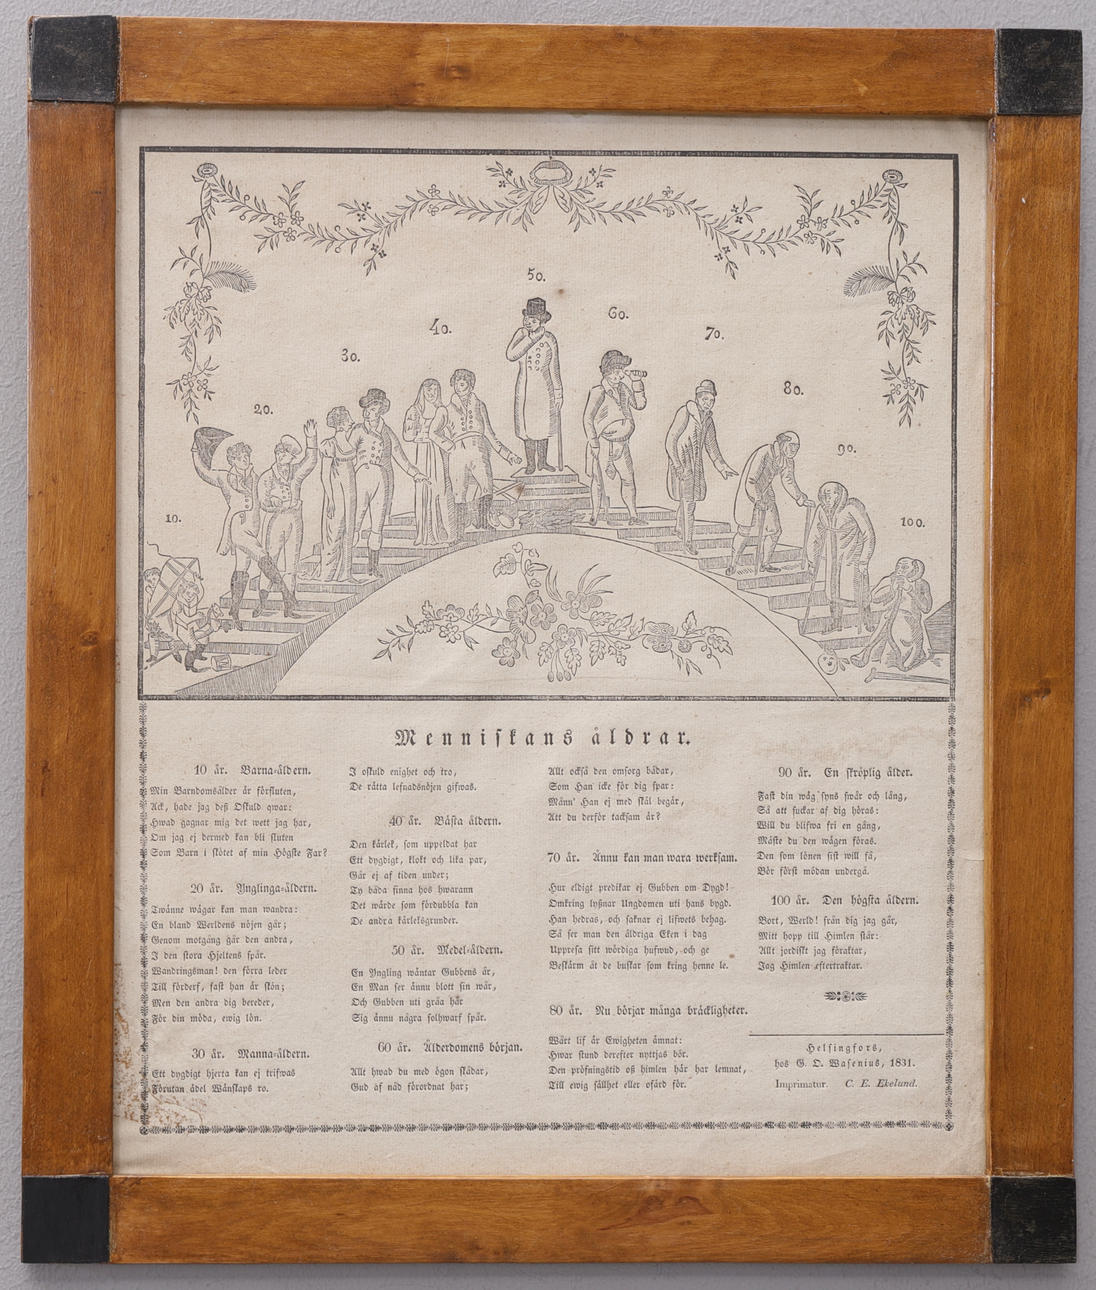 50.
60.
40.
70.
30.
80.
20.
90.
10.
100.
Menniskans åldrar.
10 år. Barna-åldern.
Min Barndomsålder är förfluten,
Ack, hade jag deß Oskuld qwar:
Hwad gagnar mig det wett jag har,
Om jag ej dermed kan bli sluten
Som Barn i skötet af min Högste Far?
20 år. Ynglinga-åldern.
Twänne wägar kan man wandra:
En bland Werldens nöjen går;
Genom motgång går den andra,
I den stora Hjeltens spår.
Wandringsman! den förra leder
Till förderf, fast han är skön;
Men den andra dig bereder,
För din möda, ewig lön.
30 år. Manna-åldern.
Ett dygdigt hjerta kan ej trifwas
Förutan ädel Wänskaps ro.
I oskuld enighet och tro,
De rätta lefnadsnöjen gifwas.
40 år. Bästa åldern.
Den kärlek, som uppeldat har
Ett dygdigt, klokt och lika par,
Går ej af tiden under;
Ty båda finna hos hwarann
Det wärde som fördubbla kan
De andra kärleksgrunder.
50 år. Medel-åldern.
En Yngling wäntar Gubbens år,
En Man ser ännu blott sin wår,
Och Gubben uti gråa hår
Sig ännu några solhwarf spår.
60 år. Ålderdomens början.
Allt hwad du med ögon skådar,
Gud af nåd förordnat har;
Allt också den omsorg bådar,
Som Han icke för dig spar:
Männ' Han ej med skäl begär,
Att du derför tacksam är?
70 år. Ännu kan man wara werksam.
Hur eldigt predikar ej Gubben om Dygd!
Omkring lyßnar Ungdomen uti hans bygd.
Han hedras, och saknar ej lifwets behag.
Så ser man den åldriga Eken i dag
Uppresa sitt wördiga hufwud, och ge
Beskärm åt de buskar som kring henne le.
80 år. Nu börjar många bräckligheter.
Wårt lif är Ewigheten ämnat:
Hwar stund derefter nyttjas bör.
Den pröfningstid oß himlen här har lemnat,
Till ewig sällhet eller ofärd för.
90 år. En skröplig ålder.
Fast din wäg syns swår och lång,
Så att suckar af dig höras:
Will du blifwa fri en gång,
Måste du den wägen föras.
Den som lönen sist will få,
Bör först mödan undergå.
100 år. Den högsta åldern.
Bort, Werld! från dig jag går,
Mitt hopp till Himlen står:
Allt jordiskt jag föraktar,
Jag Himlen eftertraktar.
Helsingfors,
hos G. O. Wasenius, 1831.
Imprimatur. C. E. Ekelund.